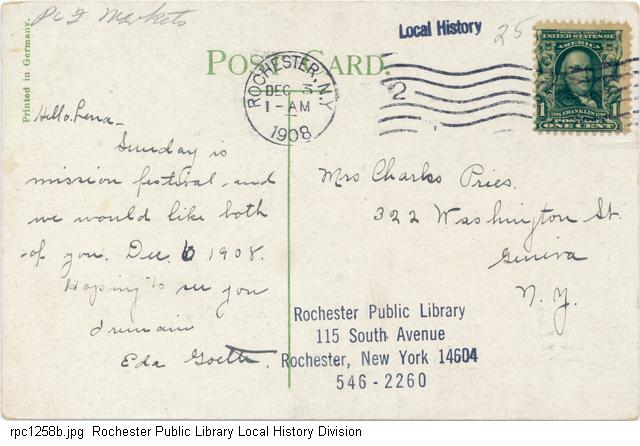 Pc F Markets
Local History
25
Printed in Germany.
POST CARD.
ROCHESTER, N.Y.
DEC 3
1-AM
1908
2
UNITED STATES OF
AMERICA
1 1
FRANKLIN
POSTAGE
ONE CENT
Hello Rena-
Sunday is
mission festival and
we would like both
of you. Dec. 6 1908.
Hoping to see you
I remain
Eda Goette.
Mrs Charles Pries.
322 Washington St.
Geneva
N. Y.
Rochester Public Library
115 South Avenue
Rochester, New York 14604
546-2260
rpc1258b.jpg Rochester Public Library Local History Division